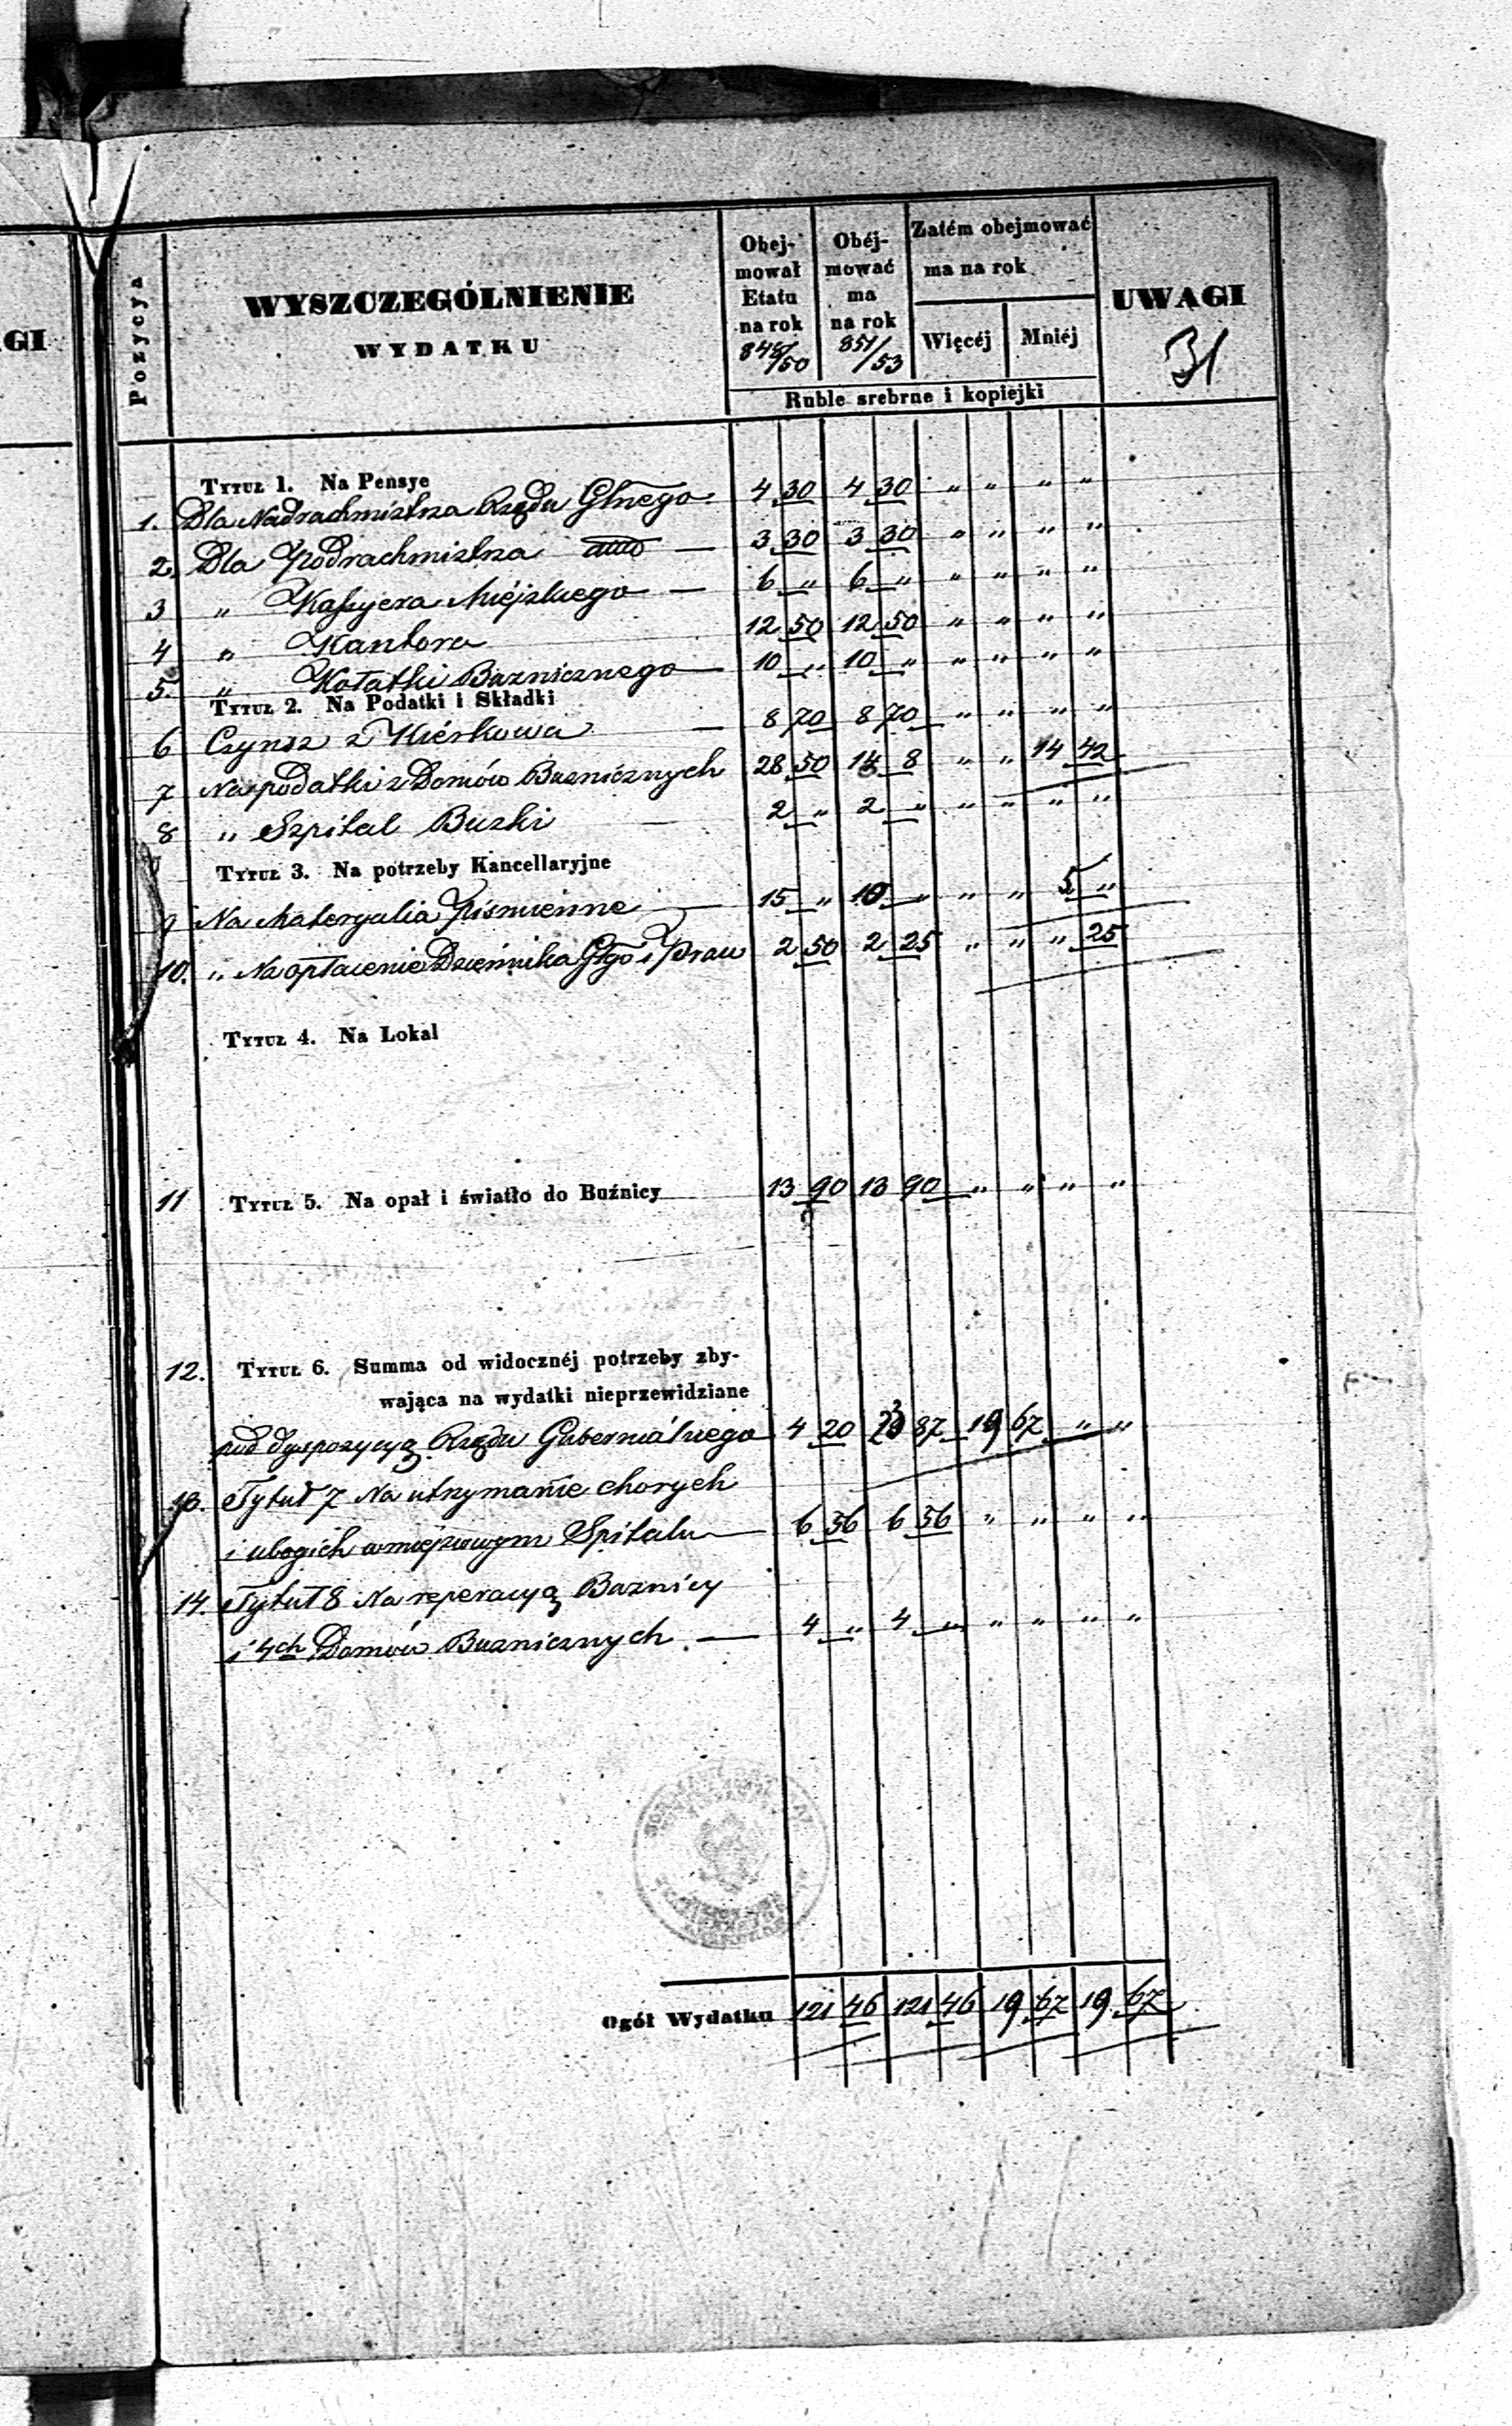 GI
Pozycya
WYSZCZEGÓLNIENIE
WYDATKU
Obej-
mował
Etatu
na rok
848/50
Obéj-
mować
ma
na rok
851/53
Zatém obejmować
ma na rok
Więcéj Mniéj
Ruble srebrne i kopiejki
UWAGI
31
Tytuł 1. Na Pensye
1. Dla Nadrachmistrza Rządu Głnego 4 30 4 30 " " " "
2. Dla Podrachmistrza — 3 30 3 30 " " " "
3 " Kassyera Miéjskiego — 6 " 6 " " " " "
4 " Kantora 12 50 12 50 " " " "
5. " Kołatki Boznicznego — 10 " 10 " " " " "
Tytuł 2. Na Podatki i Składki
6 Czynsz z — 8 70 8 70 " " " "
7 Na podatki z Domów Buznicznych 28 50 14 8 " " 14 42
8 " Szpital Buski — 2 " 2 " " " " "
Tytuł 3. Na potrzeby Kancellaryjne
9 Na Materyalia Piśmienne — 15 " 10 " " " 5 "
10. " Na opłacenie Dziennika Głgo i Praw 2 50 2 25 " " " 25
Tytuł 4. Na Lokal
11 Tytuł 5. Na opał i światło do Buźnicy 13 90 13 90 " " " "
12. Tytuł 6. Summa od widocznéj potrzeby zby-
wająca na wydatki nieprzewidziane
pod dyspozycyą Rządu Gubernialnego 4 20 23 87 19 67 " "
13. Tytuł 7 Na utrzymanie chorych
i ubogich w miejscowym Spitalu — 6 56 6 56 " " " "
14. Tytuł 8 Na reperacyą Boznicy
i 4ch Domów Buznicznych — 4 " 4 " " " " "
Ogół Wydatku 121 46 121 46 19 67 19 67